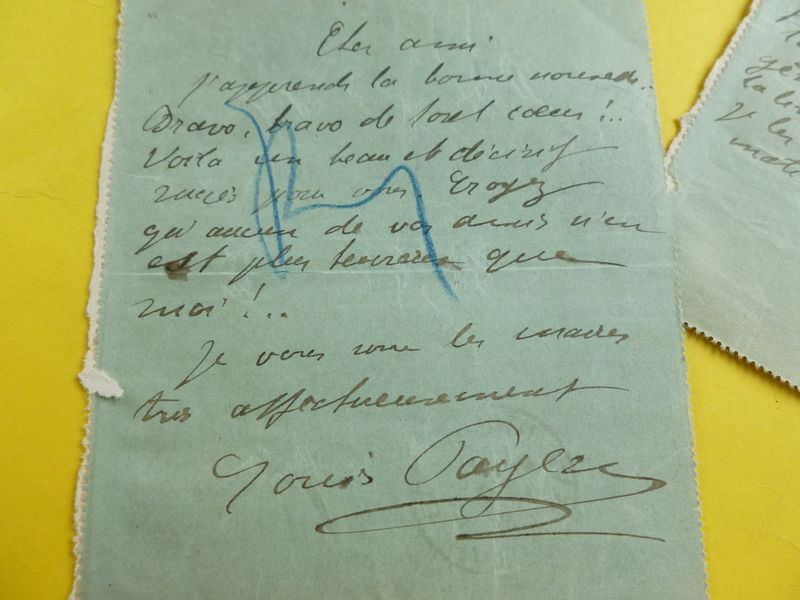 Cher ami
J'apprends la bonne nouvelle..
Bravo, bravo de tout cœur !..
Voilà un beau et décisif
succès pour vous Croyez
qu'aucun de vos amis n'en
est plus heureux que
moi !..
Je vous serre les mains
très affectueusement
Louis Payen